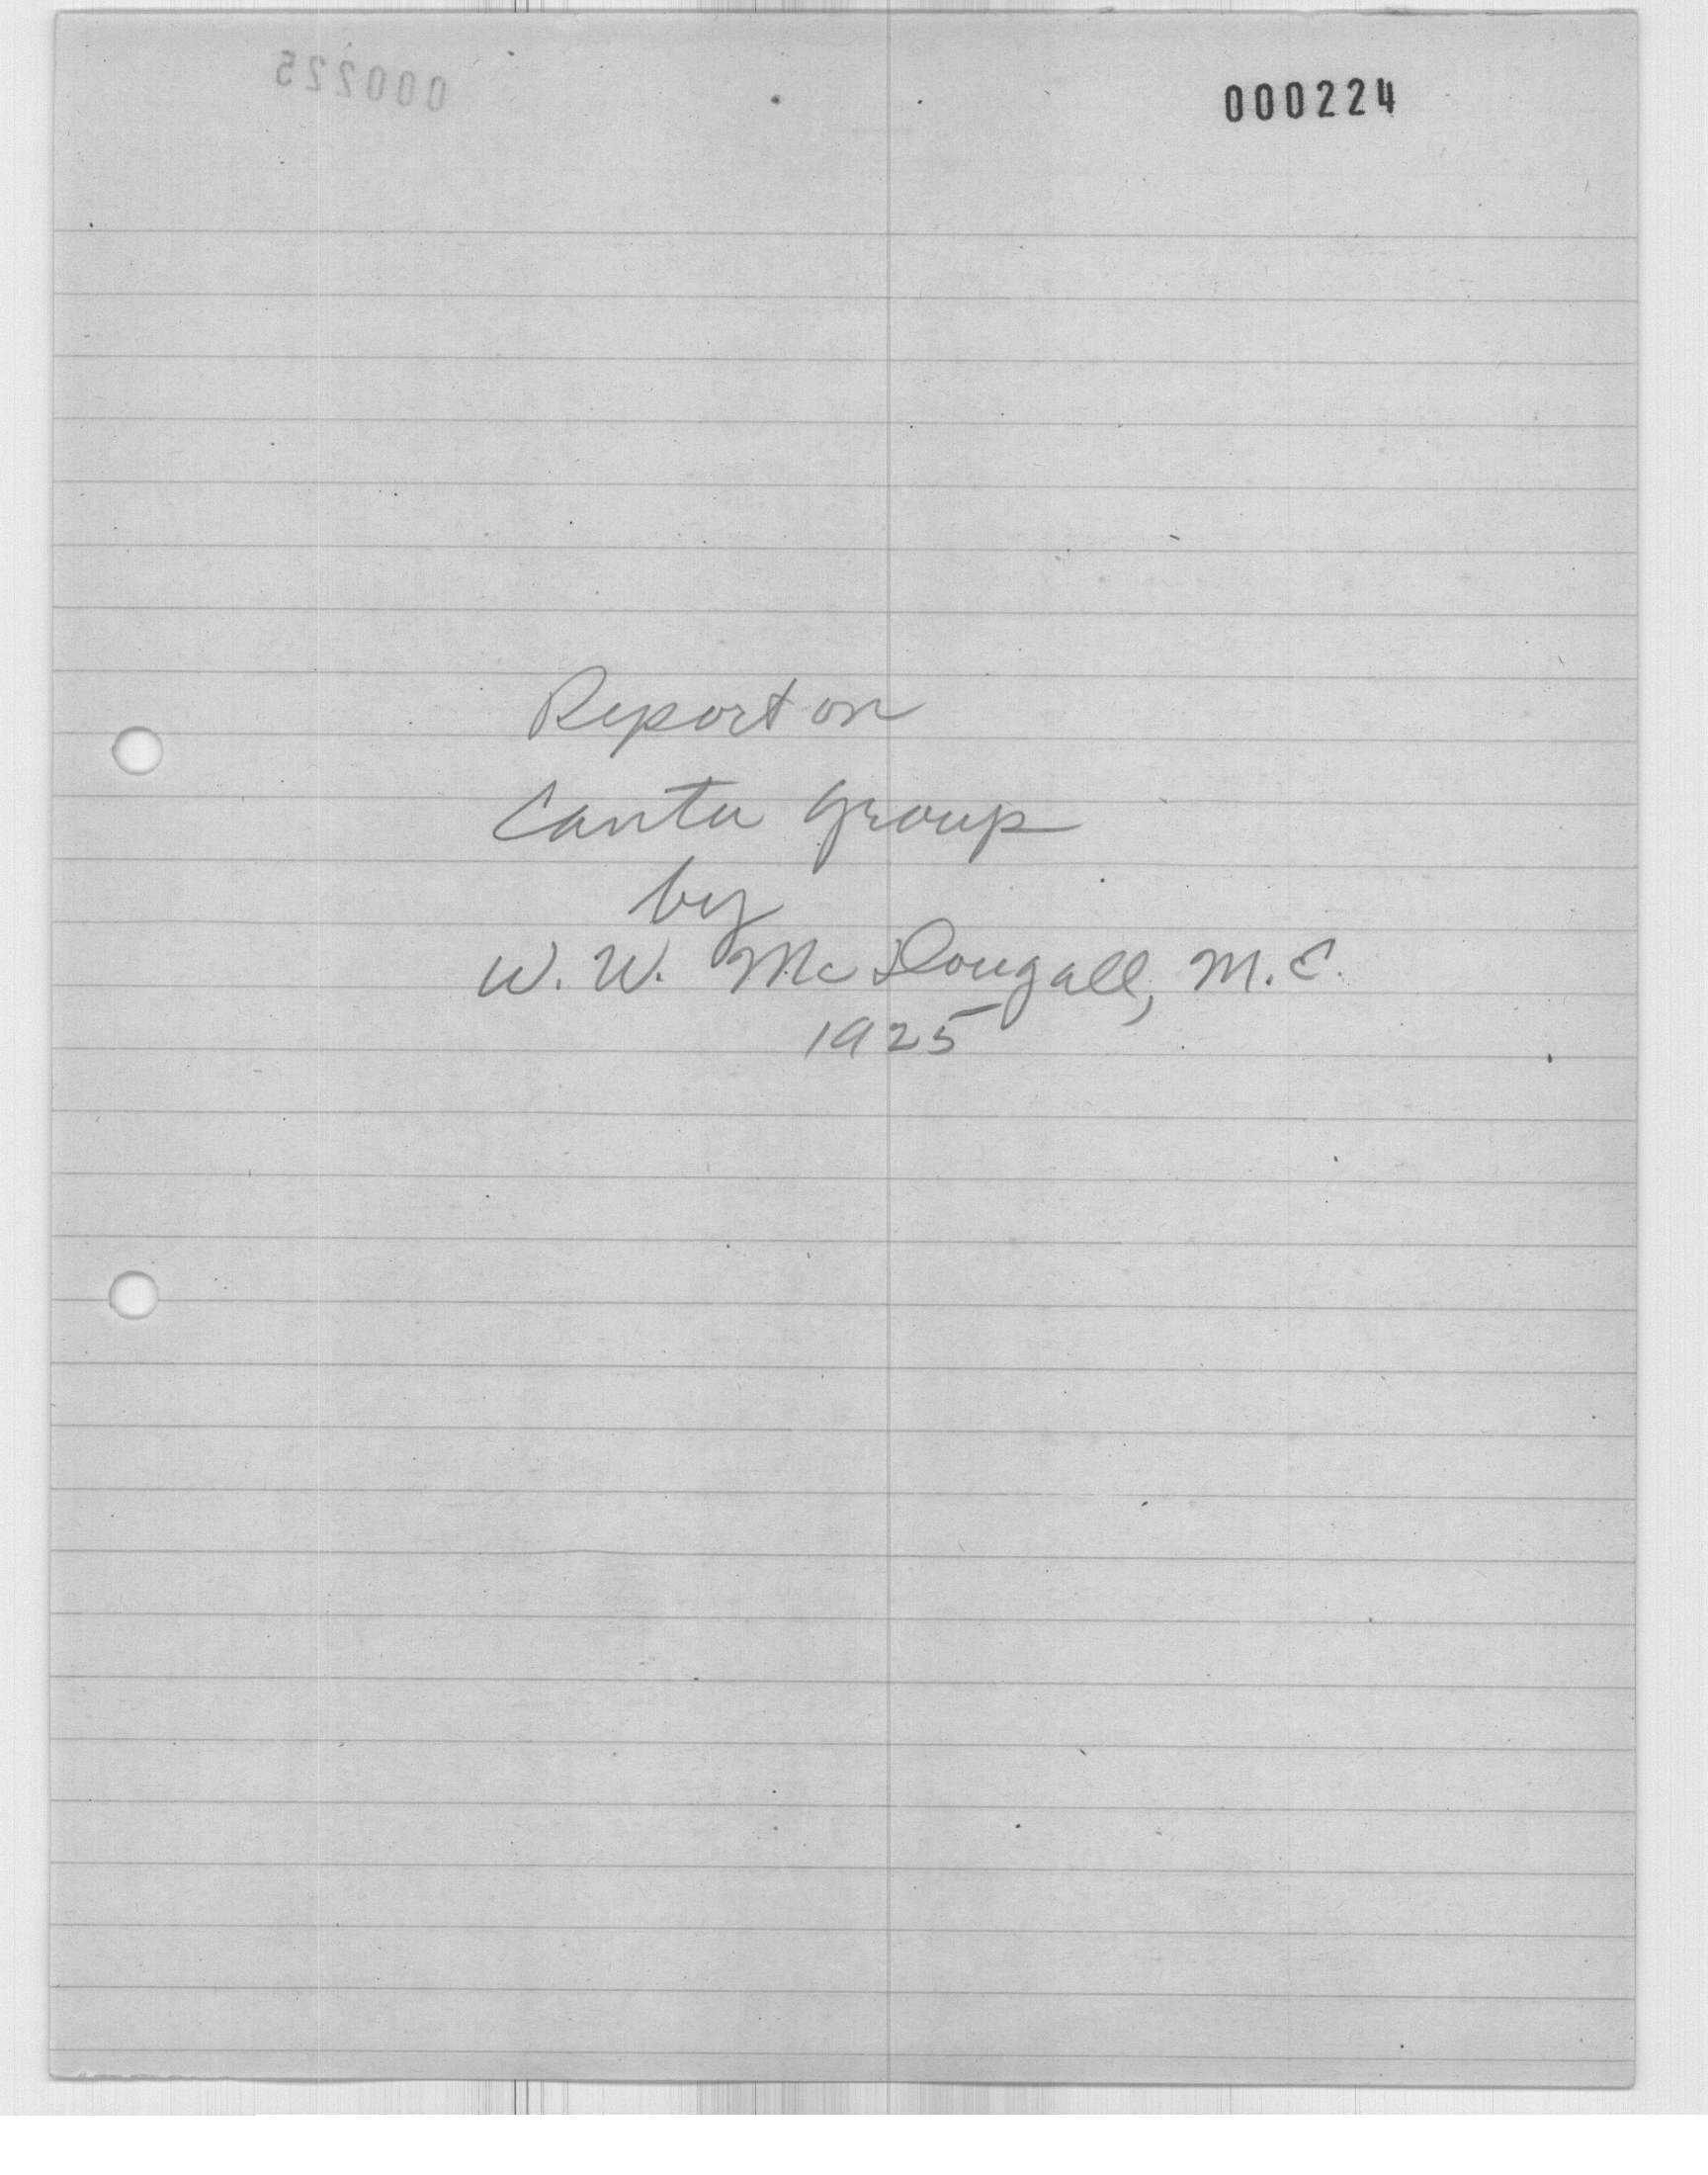 000225 000224
Report on
Cantu group
by
W. W. McDougall, M.E.
1925